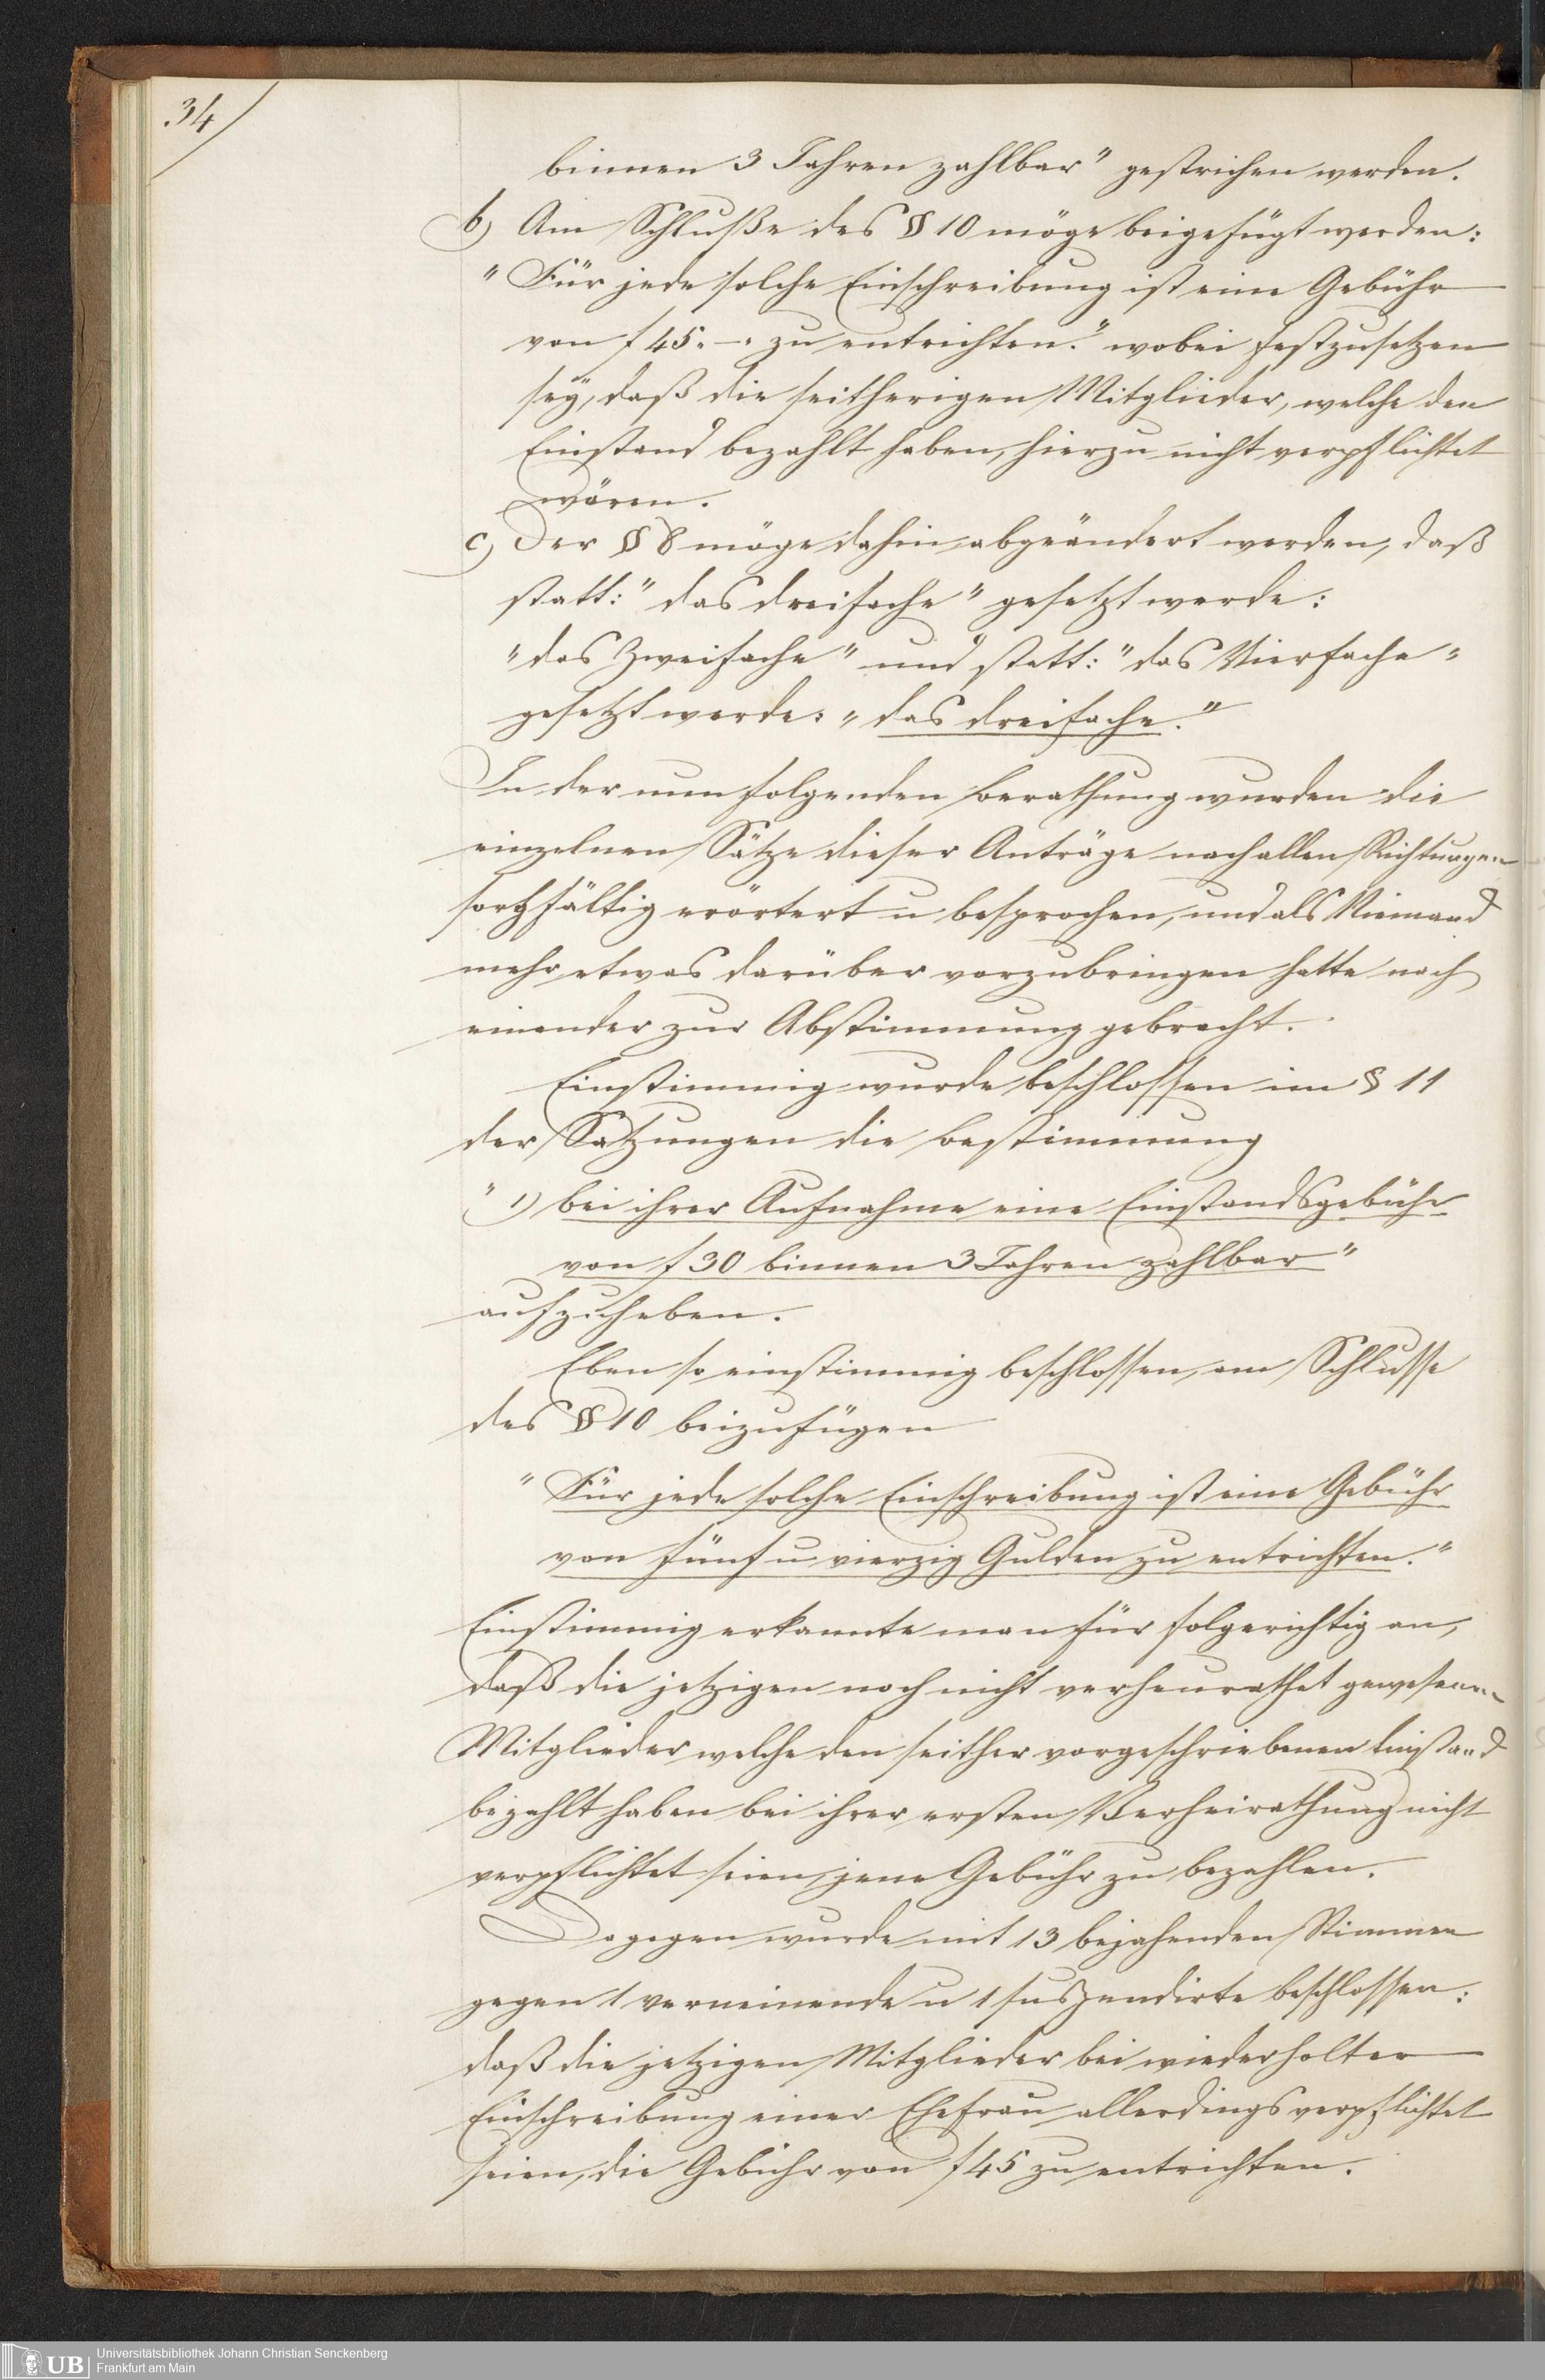 34
binnen 3 Jahren zahlbar" gestrichen werden.
b) Am Schluße des § 10 möge beigefügt werden:
"Für jede solche Einschreibung ist eine Gebühr
von f 45.–. zu entrichten." wobei festzusetzen
sey, daß die seitherigen Mitglieder, welche den
Einstand bezahlt haben, hierzu nicht verpflichtet
wären.
c) Der § 8 möge dahin abgeändert werden, daß
statt: "das dreifache" gesetzt werde:
"das Zweifache" und statt: "das Vierfache"
gesetzt werde: "das dreifache."
In der nun folgenden Berathung wurden die
einzelnen Sätze dieser Anträge nach allen Richtungen
sorgfältig erörtert u besprochen, und als Niemand
mehr etwas darüber vorzubringen hatte nach
einander zur Abstimmung gebracht.
Einstimmig wurde beschlossen im § 11
der Satzungen die Bestimmung
"1) bei ihrer Aufnahme eine Einstandsgebühr
von f 30 binnen 3 Jahren zahlbar"
aufzuheben.
Eben so einstimmig beschlossen, am Schlusse
des § 10 beizufügen
"Für jede solche Einschreibung ist eine Gebühr
von fünf u vierzig Gulden zu entrichten."
Einstimmig erkannte man für folgerichtig an,
daß die jetzigen noch nicht verheurathet gewesenen
Mitglieder welche den seither vorgeschriebenen Einstand
bezahlt haben bei ihrer ersten Verheirathung nicht
verpflichtet seien, jene Gebühr zu bezahlen.
Dagegen wurde mit 13 bejahenden Stimmen
gegen 1 verneinende u 1 suspendirte beschlossen:
daß die jetzigen Mitglieder bei wiederholter
Einschreibung einer Ehefrau allerdings verpflichtet
seien, die Gebühr von f 45 zu entrichten.
UB
Universitätsbibliothek Johann Christian Senckenberg
Frankfurt am Main